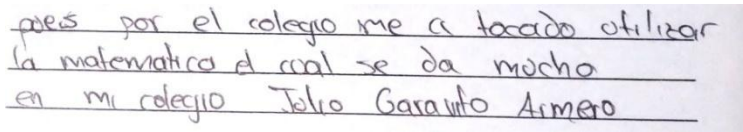 pues por el colegio me a tocado utilizar
la matematica el cual se da mucho
en mi colegio Julio Garavito Armero